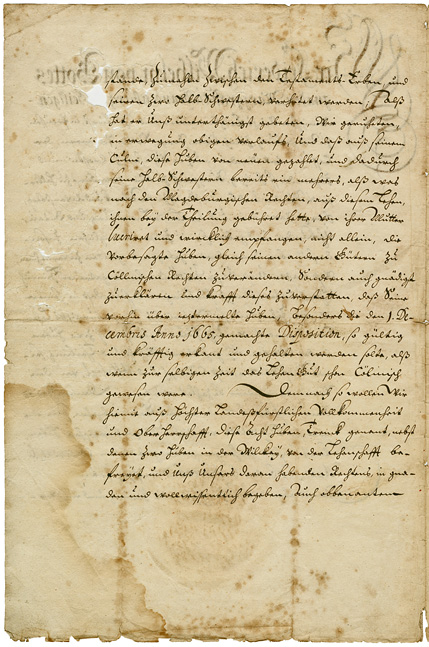 stande, Zwischen dem Testaments Erben, und
seinen zwo Halb Schwestern, verhütet werden, Alß
hat er Unß unterthänigst gebeten, Wir geruheten,
in erwegung obigen verlauffs, Und daß auß seinem
diese Huben von neuen gezahlt, und dadurch
seine Halb Schwestern bereits ein mehrers, alß was
nach den Magdeburgischen Rechten, auß diesem Lehen,
ihnen bey der Theilung gebühret hette, von ihrer Mutter
und würcklich empfangen, nicht allein, die
vorbesagte Huben, gleich seinen andern Gütern zu
Cöllmischen Rechten zuverändern, Sondern auch gnädigst
zuerklären Und krafft dieses zuverstatten, daß Seine
vorhin über Huben, besonders die den 1. De-
cembris Anno 1665, gemachte Disposition, so gültig
und kräfftig erkant und gehalten werden solte, alß
wenn zur selbigen Zeit das Lehen Gut schon Cölmisch
gewesen were. Demnach so wollen Wir
hiemit auß höchster Landesfürstlichen Vollkommenheit
und Ober Herrschafft, diese Acht Huben, genant, nebst
denen zwo Huben in der von der Lehenschafft be-
freyet, und Unß Unsers daran habenden Rechtens, in gna-
den und wollwissentlich begeben, Auch obbenanten